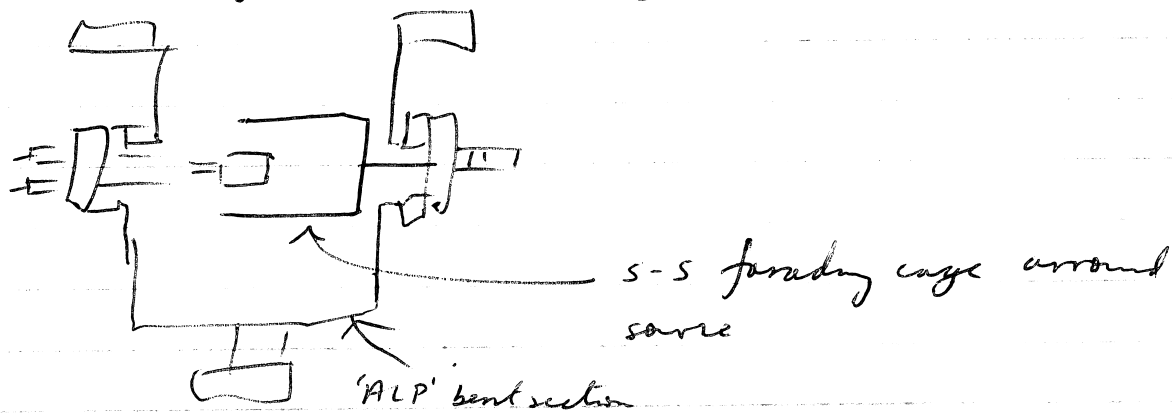 s-s faraday cage arround
source
'ALP' bent section